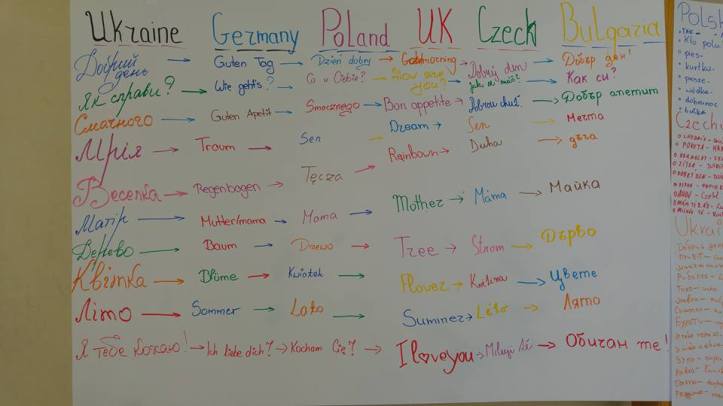 Ukraine Germany Poland UK Czech Bulgaria
Добрий день → Guten Tag → Dzień dobry → Goodmorning → Dobrý den → Добър ден!
Як справи? → Wie geht's? → Co u Ciebie? → How are you? → Jak se máš? → Как си?
Смачного → Guten Apetit → Smacznego → Bon appetite → Dobrou chuť → Добър апетит
Мрія → Traum → Sen → Dream → Sen → Мечта
Веселка → Regenbogen → Tęcza → Rainbown → Duha → дъга
Матір → Mutter/mama → Mama → Mother → Máma → Майка
Дерево → Baum → Drzewo → Tree → Strom → Дърво
Квітка → Blume → Kwiatek → Flower → Květina → Цвете
Літо → Sommer → Lato → Summer → Léto → Лято
Я тебе кохаю! → Ich liebe dich? → Kocham Cię? → I love you → Miluji tě → Обичам те!
Polsk
Czech
Ukrai